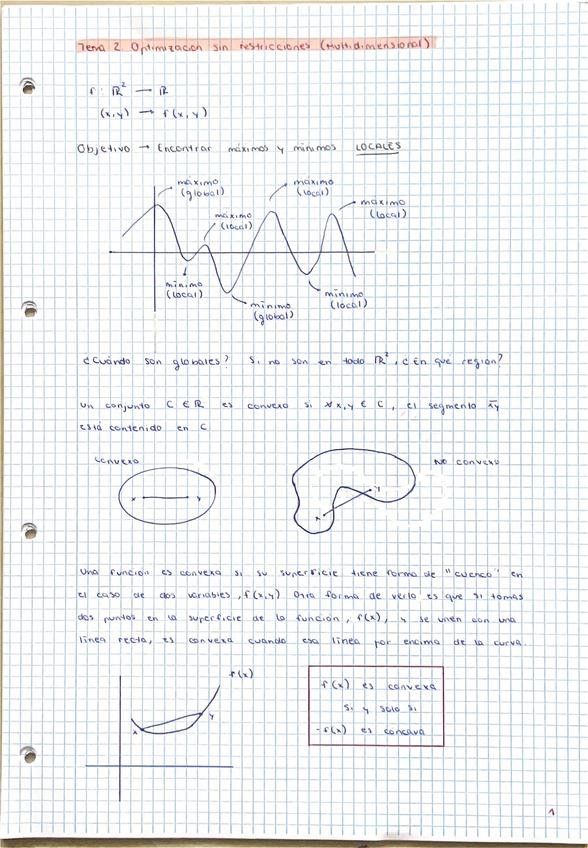 Tema 2. Optimización sin restricciones (Multidimensional)
f: ℝ² → ℝ
(x,y) → f(x,y)
Objetivo → Encontrar máximos y mínimos LOCALES
máximo
(global)
máximo
(local)
máximo
(local)
máximo
(local)
mínimo
(local)
mínimo
(global)
mínimo
(local)
¿Cuándo son globales? Si no son en todo ℝ², ¿En que región?
Un conjunto C ∈ ℝ es convexo si ∀x,y ∈ C, el segmento x̄ȳ
está contenido en C
CONVEXO
NO CONVEXO
x y
x y
Una función es convexa si su superficie tiene forma de "cuenco" en
el caso de dos variables, f(x,y) Otra forma de verlo es que si tomas
dos puntos en la superficie de la función, f(x), y se unen con una
línea recta, es convexa cuando esa línea por encima de la curva.
f(x)
x y
f(x) es convexa
si y solo si
-f(x) es concava
1